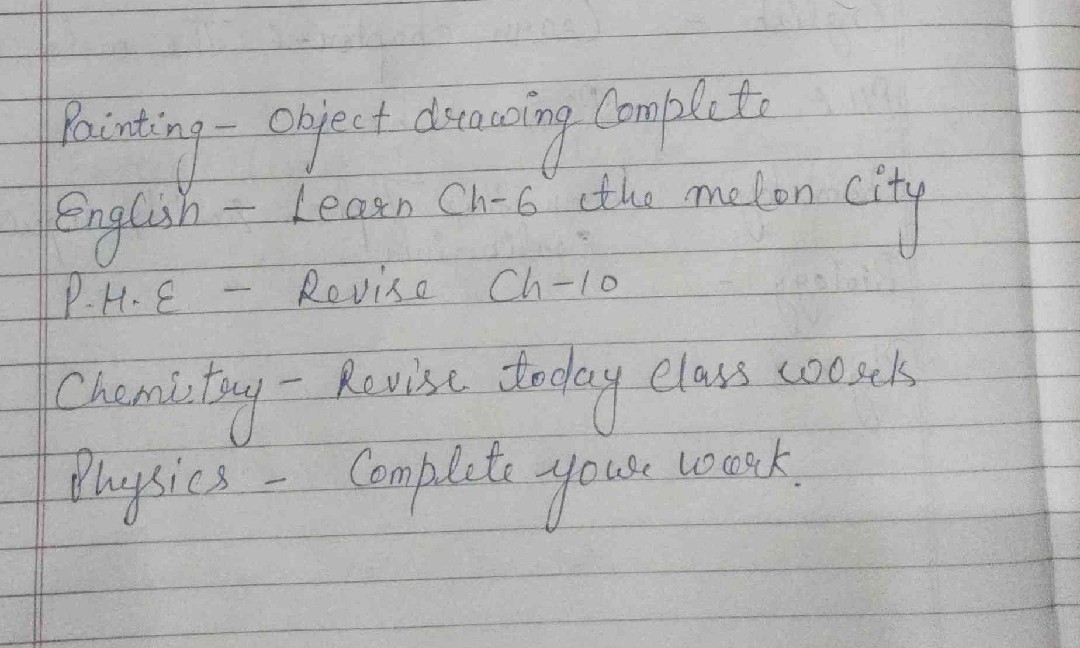 Painting - Object drawing Complete
English - Learn Ch-6 the melon City
P.H.E - Revise Ch-10
Chemistry - Revise today Class work
Physics - Complete your work.